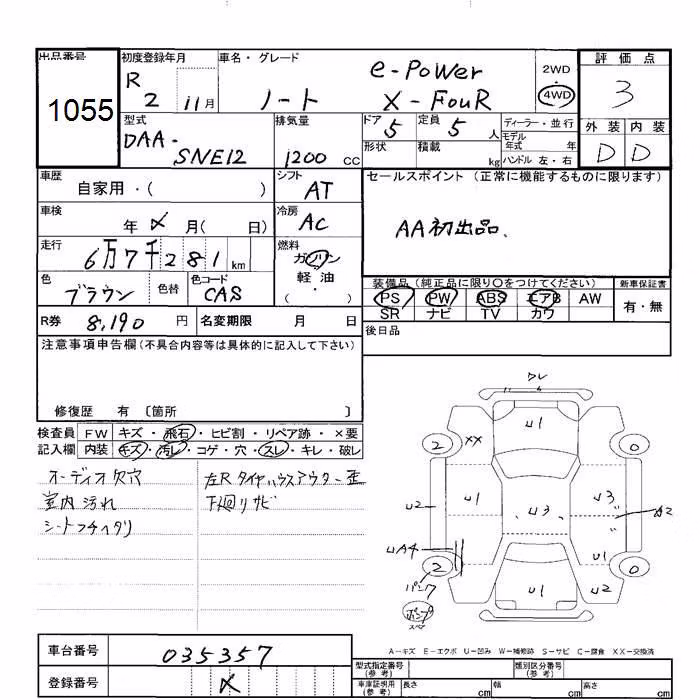 出品番号
1055
初度登録年月
R
2 11月
車名・グレード
ノート
e-PoWer
X-FouR
2WD
・
4WD
評価点
3
外装 内装
D D
型式
DAA-
SNE12
排気量
1200 CC
ドア 5
定員 5 人
形状
積載 kg
ディーラー・並行
モデル年式 年
ハンドル 左・右
車歴
自家用・( )
シフト
AT
セールスポイント(正常に機能するものに限ります)
AA初出品、
車検
年 メ 月( 日)
冷房
AC
走行
6万7千281 km
燃料
ガソリン
軽油
( ・ )
色
ブラウン
色替
色コード
CAS
装備品(純正品に限り〇をつけてください)
新車保証書
PS PW ABS エアB AW
SR ナビ TV カワ
有・無
R券 8,190 円
名変期限 月 日
後日品
注意事項申告欄(不具合内容等は具体的に記入して下さい)
修復歴 有 〔箇所 〕
検査員
記入欄
FW キズ・飛石・ヒビ割・リペア跡・×要
内装 キズ・汚レ・コゲ・穴・スレ・キレ・破レ
オーディオ欠穴
室内汚れ
シートフチヘタリ
左Rタイヤハウスアウター歪
下廻リサビ
U1
2
XX
0
U2
U1
U3
U3
A2
UA4
U1
2
0
パンク
U1
U2
ポンプ
スペア
A-キズ E-エクボ U-凹み W-補修跡 S-サビ C-腐食 XX-交換済
車台番号
035357
登録番号
メ
型式指定番号
(参考)
類別区分番号
(参考)
車庫証明用
(参考)
長さ cm
幅 cm
高さ cm